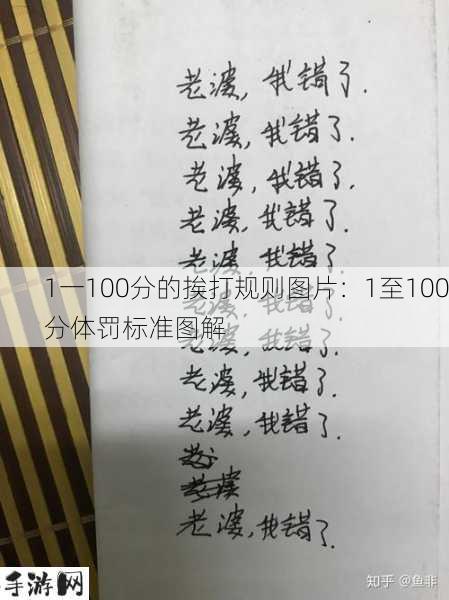 老婆,我错了.
老婆,我错了.
老婆,我错了,
老婆,我错了.
老婆,我错了
1一100分的挨打规则图片：1至100
老婆,我错了.
分体罚标准图解
老婆,我错了.
老婆,我错了.
老婆,我错了.
老婆
老婆,我错了.
手游网
知乎 @鱼非